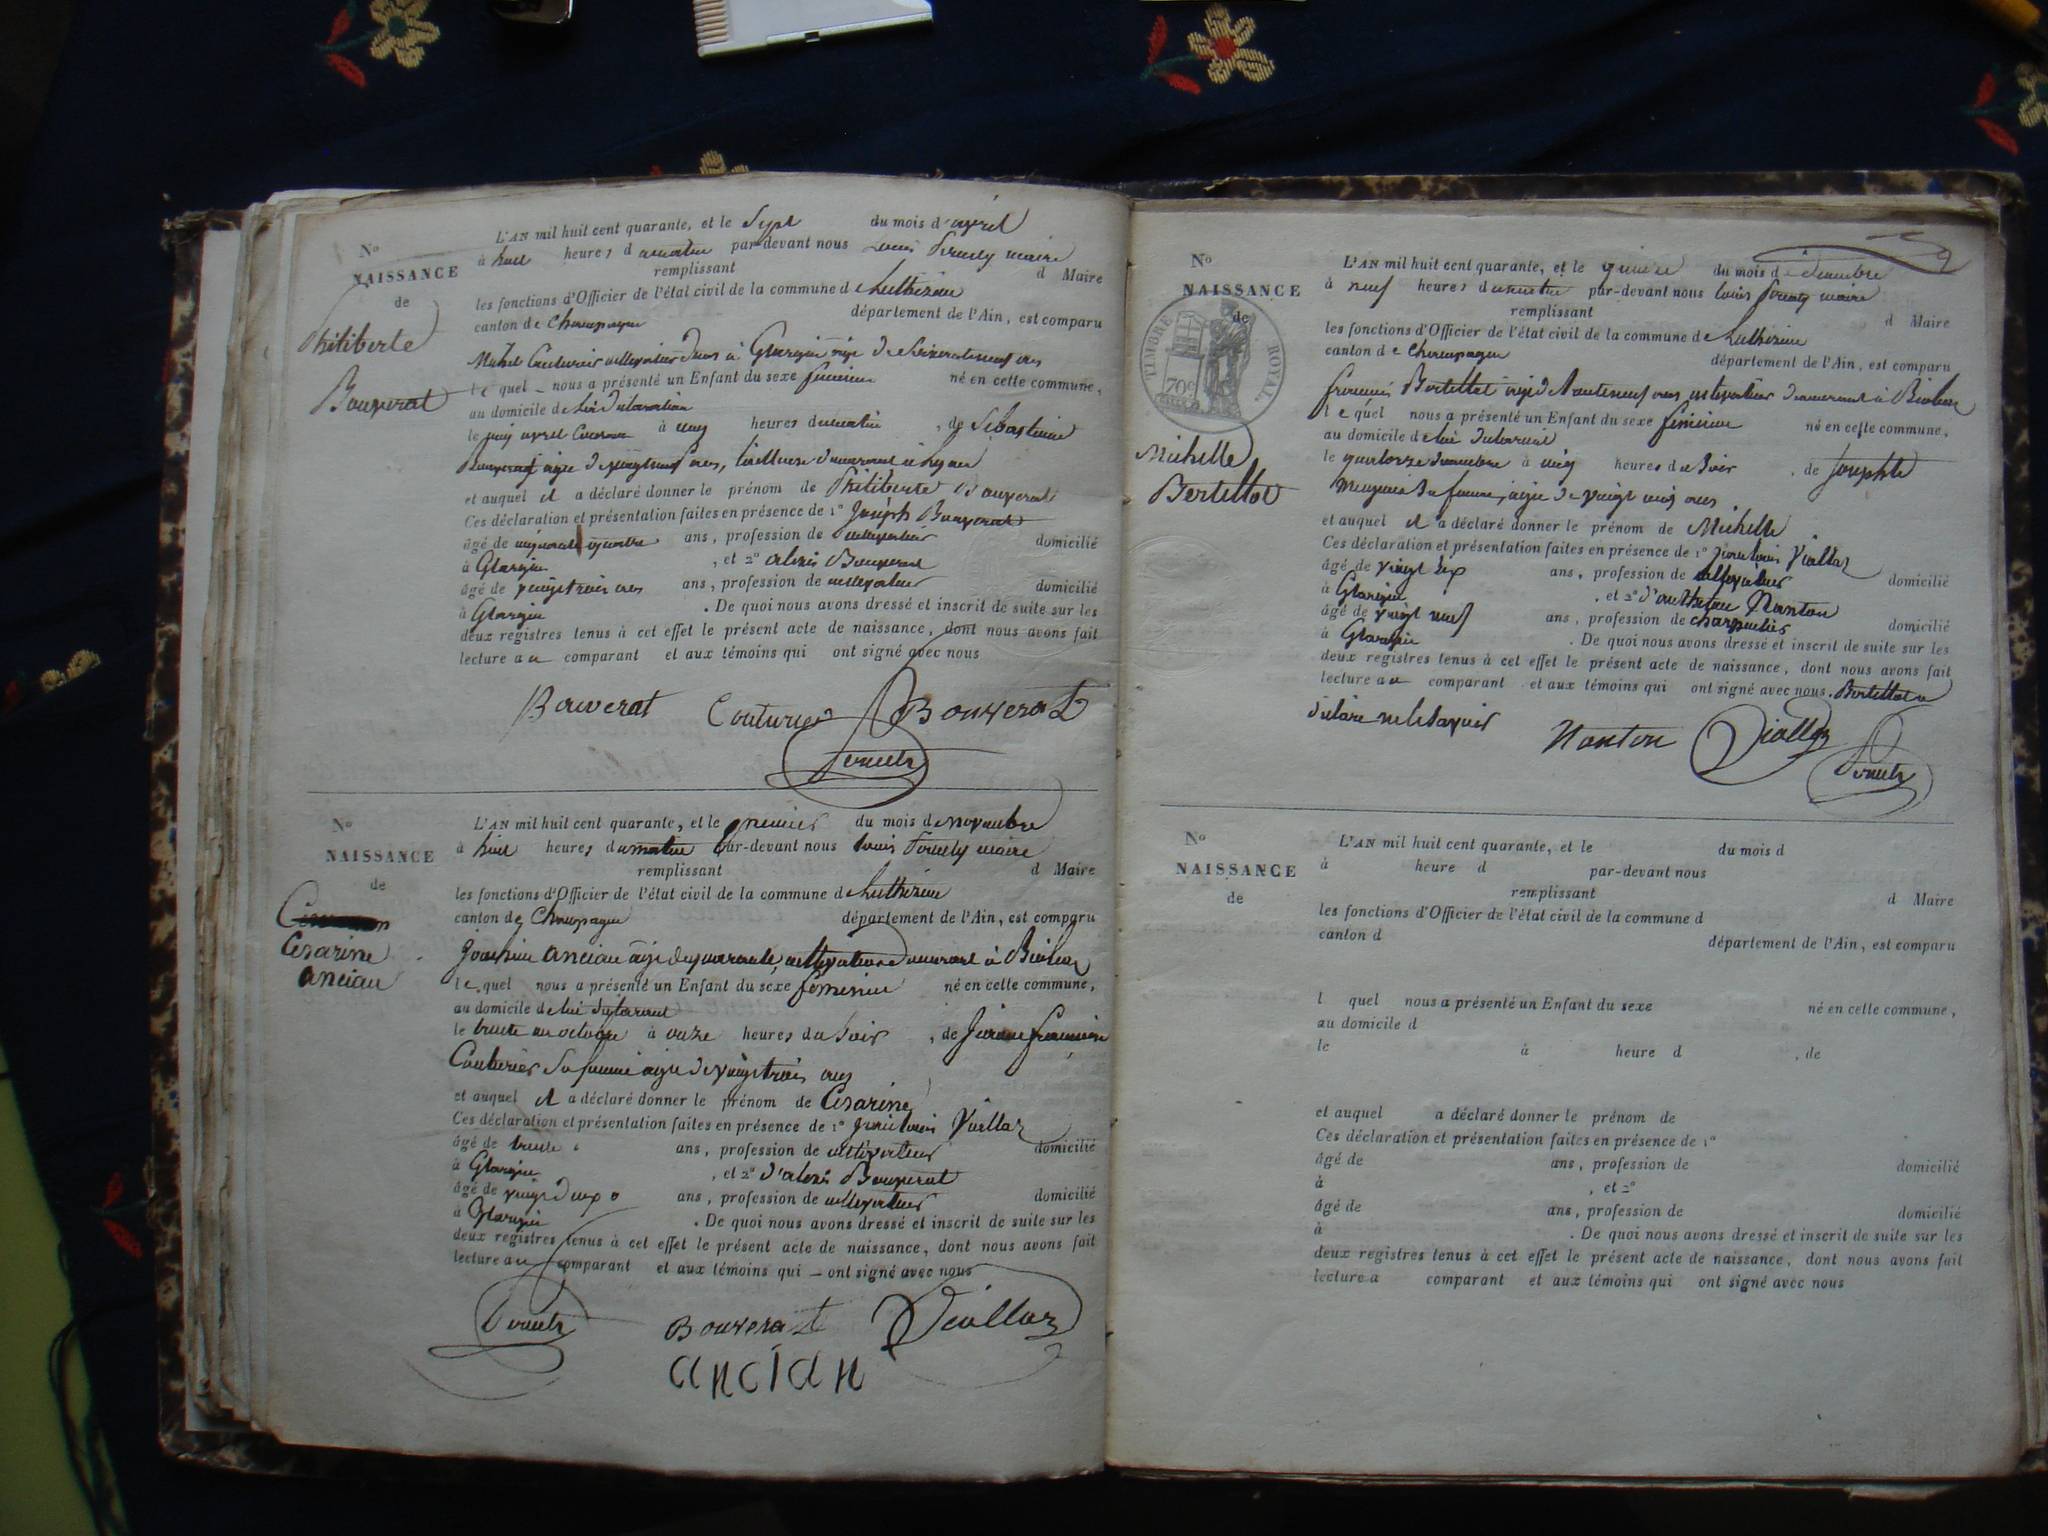 No
NAISSANCE
de
Philiberte
Bouverat
L'AN mil huit cent quarante, et le Sept du mois d'avril
à huit heures du matin par-devant nous Louis maire
remplissant d Maire
les fonctions d'Officier de l'état civil de la commune de
canton de Champagne département de l'Ain, est comparu
Michel Couturier cultivateur à
le quel nous a présenté un Enfant du sexe féminin né en cette commune,
au domicile de lui déclarant
le avril courant à cinq heures du matin, de Sébastienne
Bouverat âgée de
et auquel il a déclaré donner le prénom de Philiberte Bouverat
Ces déclaration et présentation faites en présence de 1º Joseph Bouverat
âgé de quatre ans, profession de cultivateur domicilié
à, et 2º alexis Bouverat
âgé de vingt trois ans ans, profession de cultivateur domicilié
à. De quoi nous avons dressé et inscrit de suite sur les
deux registres tenus à cet effet le présent acte de naissance, dont nous avons fait
lecture au comparant et aux témoins qui ont signé avec nous
Bouverat Couturier Bouverat
No
NAISSANCE
de
Cesarine
ancian
L'AN mil huit cent quarante, et le premier du mois de novembre
à huit heures du matin par-devant nous Louis maire
remplissant d Maire
les fonctions d'Officier de l'état civil de la commune de
canton de Champagne département de l'Ain, est comparu
Joachim ancian âgé de quarante, cultivateur demeurant à
le quel nous a présenté un Enfant du sexe féminin né en cette commune,
au domicile de lui déclarant
le trente un octobre à onze heures du Soir, de
Couturier Sa femme âgée de vingt trois ans
et auquel il a déclaré donner le prénom de Cesarine
Ces déclaration et présentation faites en présence de 1º Viallaz
âgé de trente ans, profession de cultivateur domicilié
à, et 2º d'alexis Bouverat
âgé de vingt deux ans, profession de cultivateur domicilié
à. De quoi nous avons dressé et inscrit de suite sur les
deux registres tenus à cet effet le présent acte de naissance, dont nous avons fait
lecture au comparant et aux témoins qui ont signé avec nous
Bouverat Viallaz
ancian
No
NAISSANCE
de
TIMBRE ROYAL
70c
Michelle
Bertillot
L'AN mil huit cent quarante, et le quinze du mois de décembre
à neuf heures du matin par-devant nous Louis maire
remplissant d Maire
les fonctions d'Officier de l'état civil de la commune de
canton de Champagne département de l'Ain, est comparu
Bertillot âgé de trente neuf ans cultivateur demeurant à
le quel nous a présenté un Enfant du sexe féminin né en cette commune,
au domicile de lui déclarant
le quatorze décembre à cinq heures du Soir, de Josephte
Sa femme, âgée de vingt ans
et auquel il a déclaré donner le prénom de Michelle
Ces déclaration et présentation faites en présence de 1º Viallaz
âgé de vingt ans, profession de cultivateur domicilié
à, et 2º Nanton
âgé de vingt neuf ans, profession de charpentier domicilié
à. De quoi nous avons dressé et inscrit de suite sur les
deux registres tenus à cet effet le présent acte de naissance, dont nous avons fait
lecture au comparant et aux témoins qui ont signé avec nous. Bertillot a
déclaré ne le savoir
Nanton Viallaz
No
NAISSANCE
de
L'AN mil huit cent quarante, et le du mois d
à heure d par-devant nous
remplissant d Maire
les fonctions d'Officier de l'état civil de la commune d
canton d département de l'Ain, est comparu
l quel nous a présenté un Enfant du sexe né en cette commune,
au domicile d
le à heure d, de
et auquel a déclaré donner le prénom de
Ces déclaration et présentation faites en présence de 1º
âgé de ans, profession de domicilié
à, et 2º
âgé de ans, profession de domicilié
à. De quoi nous avons dressé et inscrit de suite sur les
deux registres tenus à cet effet le présent acte de naissance, dont nous avons fait
lecture a comparant et aux témoins qui ont signé avec nous